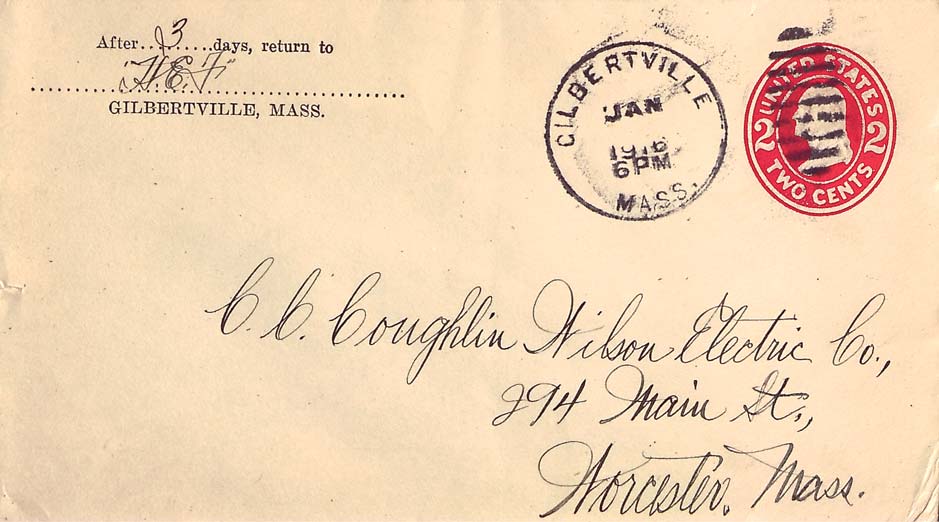 After...3.....days, return to
"H.E.F"
GILBERTVILLE, MASS.
GILBERTVILLE
JAN
1916
6 PM
MASS.
UNITED STATES
2 2
TWO CENTS
C. C. Coughlin Wilson Electric Co.,
294 Main St.,
Worcester, Mass.